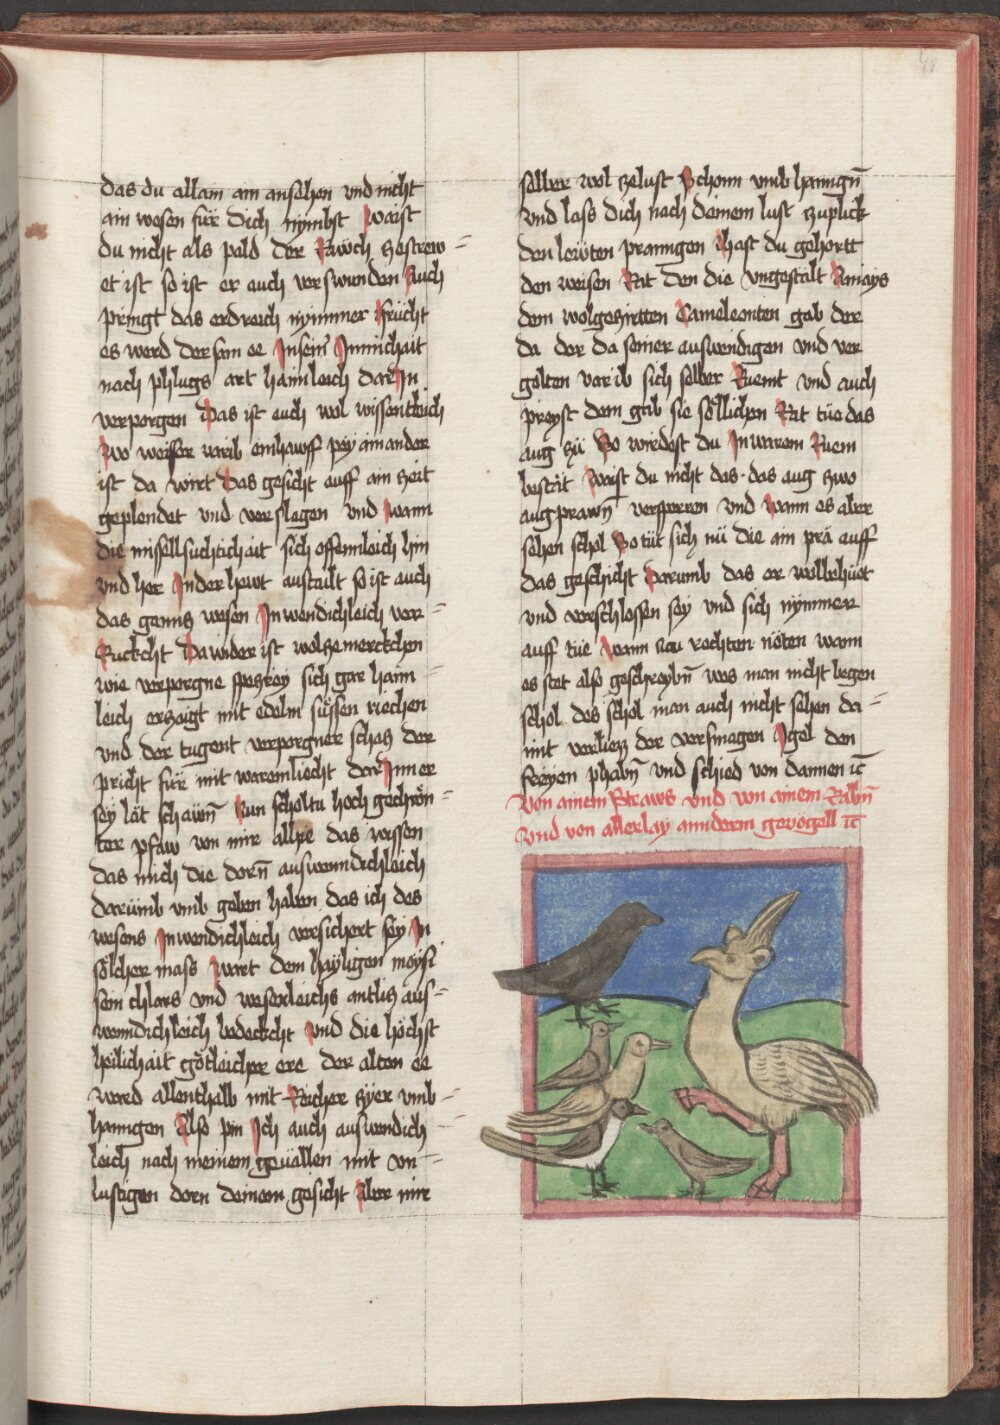 das du allain ain ansehen vnd nicht
ain wesen für dich nymbst Waist
du nicht als pald der Rawch zestrew=
et ist so ist er auch verswunden Auch
pringt das erdreich nymmer frücht
es werd der sam ee Jn sein Jnnichait
nach phlugs art haimleich dar Jn
verporgen Das ist euch wol wissentleich
Wo weisser varib ein hawff pey ain ander
ist da wirt Das gesicht auff ain zeit
geplendet vnd verslagen vnd wann
die missellsuchtichait sich offennleich hin
vnd her Jn der hawt austailt so ist auch
das gantz wesen Jnwendichleich ver=
Ruckcht Dawider ist wol ze merckchen
wie verporgne spezrey sich gar haim=
leich erzaigt mit edelm süssen riechen
vnd der tugent verporgner schatz der
pricht für mit warem liecht dar Jnn er
sey lät schawn Nun scholtu hoch gechrön=
ter pfaw von mir allye das wissen
das mich die dorn auswenndichleich
darümb vmb geben haben das ich des
wesens Jnwendichleich versichert sey Jn
sölcher mass Wart dem hayligen moysi
sein chlars vnd weserleichs antlitz aus=
wenndichleich bedeckcht Vnd die höchst
heilichait götleicher ere der alten ee
ward allenthalb mit Reicher zyer vmb=
hanngen Also pin Jch auch auswendich=
leich nach meinem geuallen mit vn=
lustigen dorn deinem gesicht Aber mir
selber wol zelust Schonn vmbhanngn
vnd lass dich nach deinem lust zuplick
den lewten pranngen Hast du gehortt
den weisen Rat den die vngestalt Amays
dem wolgezirtten Cameleonten gab der
da der da seiner auswendigen vnd ver
golten varib sich selber Ruemt vnd auch
preyst dem gab sie söllichen Rat tüe das
aug zü So wirdest du Jn warem Ruem
bestät Waist du nicht das das aug zwo
augprawn versperren vnd Wann es aber
sehen schol So tüt sich nü die ain prä auff
das geschicht Darumb das er wolbehüet
vnd verschlossen sey vnd sich nymmer
auff tüe Wann zeu rechten nöten wann
es stet also geschreybn wes man nicht begen
schol des schol man auch nicht sehen da=
mit verliezz der versmagen Jgel den
freyen phabn vnd schied von dannen rc
Von ainem Straws vnd von ainem Rabn
Vnd von allerlay annderm gevögell rc